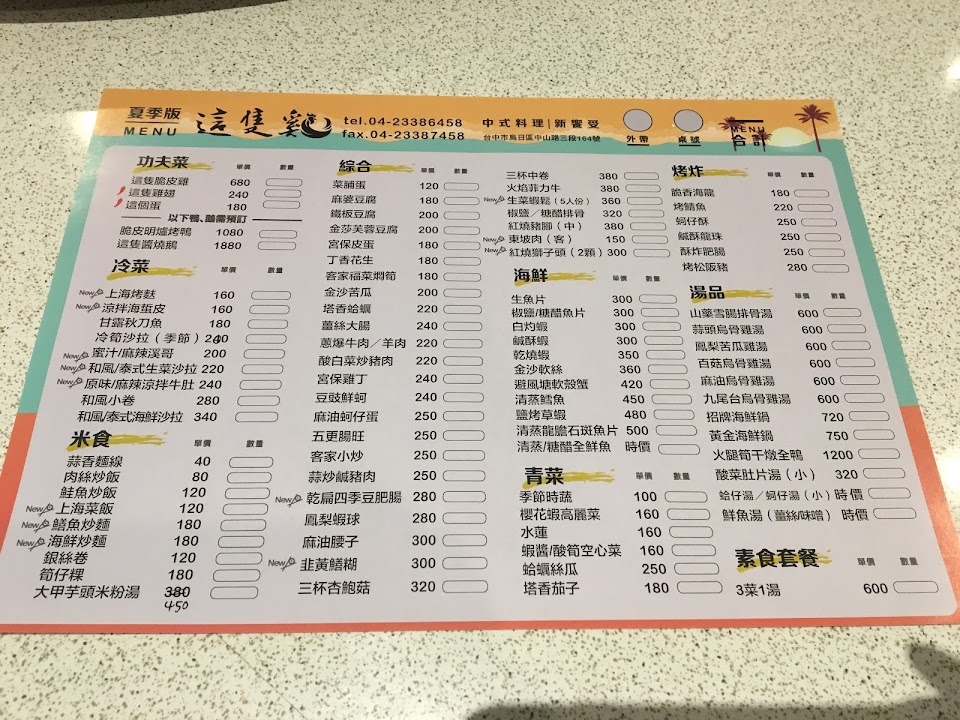 夏季版
MENU
這隻雞
tel.04-23386458
fax.04-23387458
中式料理|新饗受
台中市烏日區中山路三段164號
外帶
桌號
MENU
合計
功夫菜 單價 數量
這隻脆皮雞 680
這隻雞翅 240
這個蛋 180
以下鴨、鵝需預訂
脆皮明爐烤鴨 1080
這隻醬燒鵝 1880
冷菜 單價 數量
New 上海烤麩 160
New 涼拌海蜇皮 160
甘露秋刀魚 180
冷筍沙拉(季節) 240
New 蜜汁/麻辣溪哥 200
New 和風/泰式生菜沙拉 220
New 原味/麻辣涼拌牛肚 240
和風小卷 280
和風/泰式海鮮沙拉 340
米食 單價 數量
蒜香麵線 40
肉絲炒飯 80
鮭魚炒飯 120
New 上海菜飯 120
New 鱔魚炒麵 180
New 海鮮炒麵 180
銀絲卷 120
筍仔粿 180
大甲芋頭米粉湯 380
450
綜合 單價 數量
菜脯蛋 120
麻婆豆腐 180
鐵板豆腐 200
金莎芙蓉豆腐 200
宮保皮蛋 180
丁香花生 180
客家福菜燜筍 180
金沙苦瓜 200
塔香蛤蠣 220
薑絲大腸 240
蔥爆牛肉／羊肉 220
酸白菜炒豬肉 220
宮保雞丁 240
豆豉鮮蚵 240
麻油蚵仔蛋 250
五更腸旺 250
客家小炒 250
蒜炒鹹豬肉 250
New 乾扁四季豆肥腸 280
鳳梨蝦球 280
麻油腰子 300
New 韭黃鱔糊 300
三杯杏鮑菇 320
三杯中卷 380
火焰菲力牛 380
New 生菜蝦鬆(5人份) 360
椒鹽／糖醋排骨 320
紅燒豬腳(中) 380
New 東坡肉(客) 150
New 紅燒獅子頭(2顆) 300
海鮮 單價 數量
生魚片 300
椒鹽/糖醋魚片 300
白灼蝦 300
鹹酥蝦 300
乾燒蝦 350
金沙軟絲 360
避風塘軟殼蟹 420
清蒸鱈魚 450
鹽烤草蝦 480
清蒸龍膽石斑魚片 500
清蒸/糖醋全鮮魚 時價
青菜 單價 數量
季節時蔬 100
櫻花蝦高麗菜 160
水蓮 160
蝦醬/酸筍空心菜 160
蛤蠣絲瓜 250
塔香茄子 180
烤炸 單價 數量
脆香海龍 180
烤鯖魚 220
蚵仔酥 250
鹹酥龍珠 250
酥炸肥腸 250
烤松阪豬 280
湯品 單價 數量
山藥雪腸排骨湯 600
蒜頭烏骨雞湯 600
鳳梨苦瓜雞湯 600
百菇烏骨雞湯 600
麻油烏骨雞湯 600
九尾台烏骨雞湯 600
招牌海鮮鍋 720
黃金海鮮鍋 750
火腿筍干燉全鴨 1200
酸菜肚片湯(小) 320
蛤仔湯／蚵仔湯(小) 時價
鮮魚湯(薑絲/味噌) 時價
素食套餐 單價 數量
3菜1湯 600